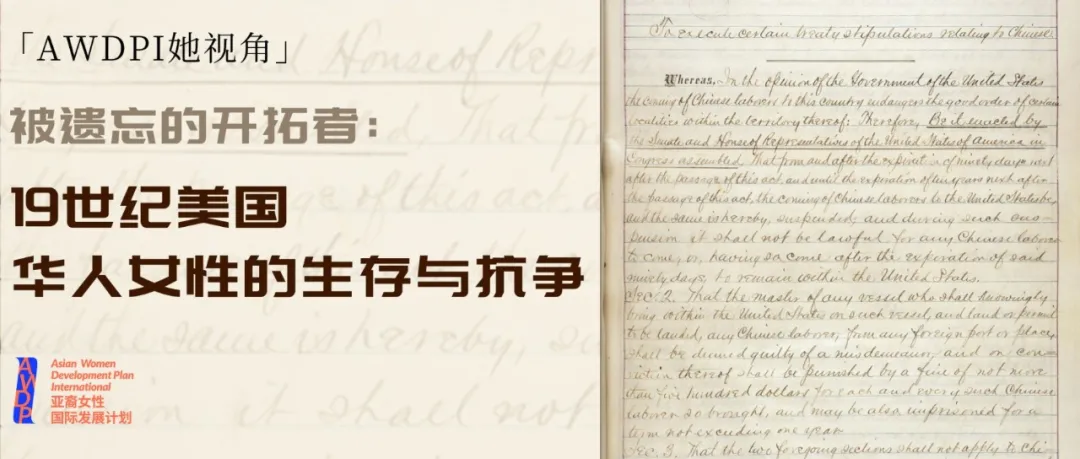 「AWDPI她视角」
被遗忘的开拓者：
19世纪美国
华人女性的生存与抗争
AWDP
Asian Women
Development Plan
International
亚裔女性
国际发展计划
To execute certain treaty stipulations relating to Chinese.
Whereas, In the opinion of the Government of the United States
the coming of Chinese laborers to this country endangers the good order of certain
localities within the territory thereof: Therefore, Be it enacted by
the Senate and House of Representatives of the United States of America in
Congress assembled, That from and after the expiration of ninety days next
after the passage of this act, and until the expiration of ten years next after
the passage of this act, the coming of Chinese laborers to the United States be,
and the same is hereby, suspended; and during such sus-
pension it shall not be lawful for any Chinese laborer
to come, or, having so come after the expiration of said
ninety days, to remain within the United States.
Sec. 2. That the master of any vessel who shall knowingly
bring within the United States on such vessel, and land or permit
to be landed, any Chinese laborer, from any foreign port or place,
shall be deemed guilty of a misdemeanor, and on con-
viction thereof shall be punished by a fine of not more
than five hundred dollars for each and every such Chinese
laborer so brought, and may be also imprisoned for a
term not exceeding one year.
Sec. 3. That the two foregoing sections shall not apply to Chi-